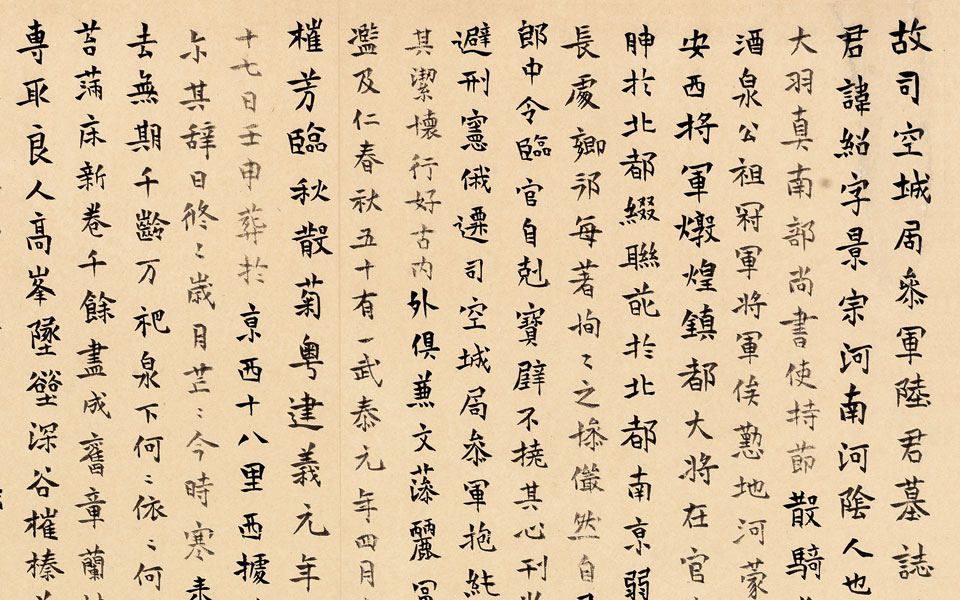 故司空城局叅軍陸君墓誌
君諱紹字景宗河南河陰人也
大羽真南部尚書使持莭散騎
酒泉公祖冠軍將軍俟懃地河蒙
安西將軍燉煌鎮都大將在官
胂於北都綴聯茈於北都南京弱
長處鄉邪每著拘〻之摻儼然自
郎中令臨官自剋寶辟不撓其心刊
避刑憲俄遷司空城局叅軍抱純
其潔懷行好古內外俱兼文藻麗
濫及仁春秋五十有一武泰元年四月
摧芳臨秋散菊粵建義元年
十七日壬申葬於京西十八里西據
尒其辞日悠〻歲月芒〻今時寒来
去無期千齡万祀泉下何〻依〻何
苔蒲床新卷千餘盡成舊章蘭
専取良人高峯墜壑深谷摧榛